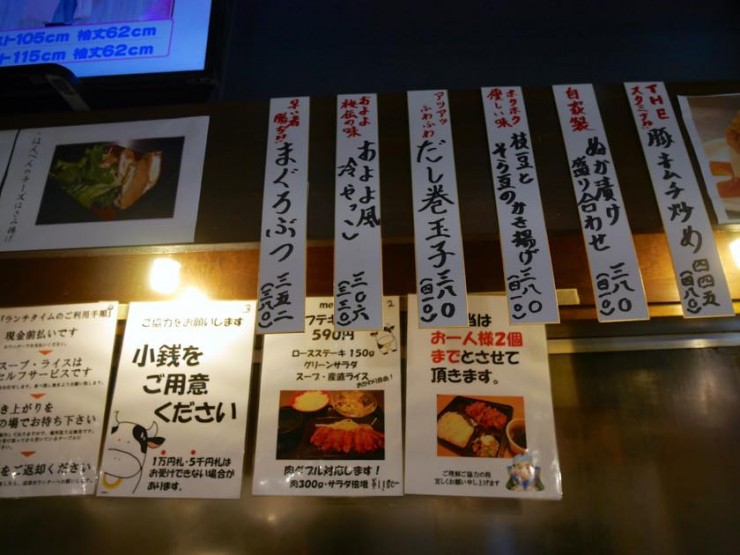 スト105cm 袖丈62cm
ト115cm 袖丈62cm
はんぺんのチーズはさみ揚げ
早い者勝ち!!
まぐろぶつ
三五二
(三八〇)
およよ秘伝の味
およよ風
冷やっこ
三〇六
(三三〇)
アツアツ
ふわふわ
だし巻玉子
三八〇
(四一〇)
ホクホク
優しい味
枝豆と
そら豆のかき揚げ
三八〇
(四一〇)
自家製
ぬか漬け
盛り合わせ
三八〇
(四一〇)
THE
スタミナ
豚キムチ炒め
四四五
(四八〇)
『ランチタイムのご利用手順』
現金前払いです
スープ・ライスは
セルフサービスです
き上がりを
の場でお待ち下さい
をご返却ください
ご協力をお願いします
小銭を
ご用意
ください
1万円札・5千円札は
お受けできない場合が
あります。
フテキ
590円
ロースステーキ 150g
グリーンサラダ
スープ・産直ライス
肉ダブル対応します!
肉300g・サラダ倍増 ¥1,180
当は
お一人様2個
までとさせて
頂きます。
ご理解ご協力の程
宜しくお願い申し上げます